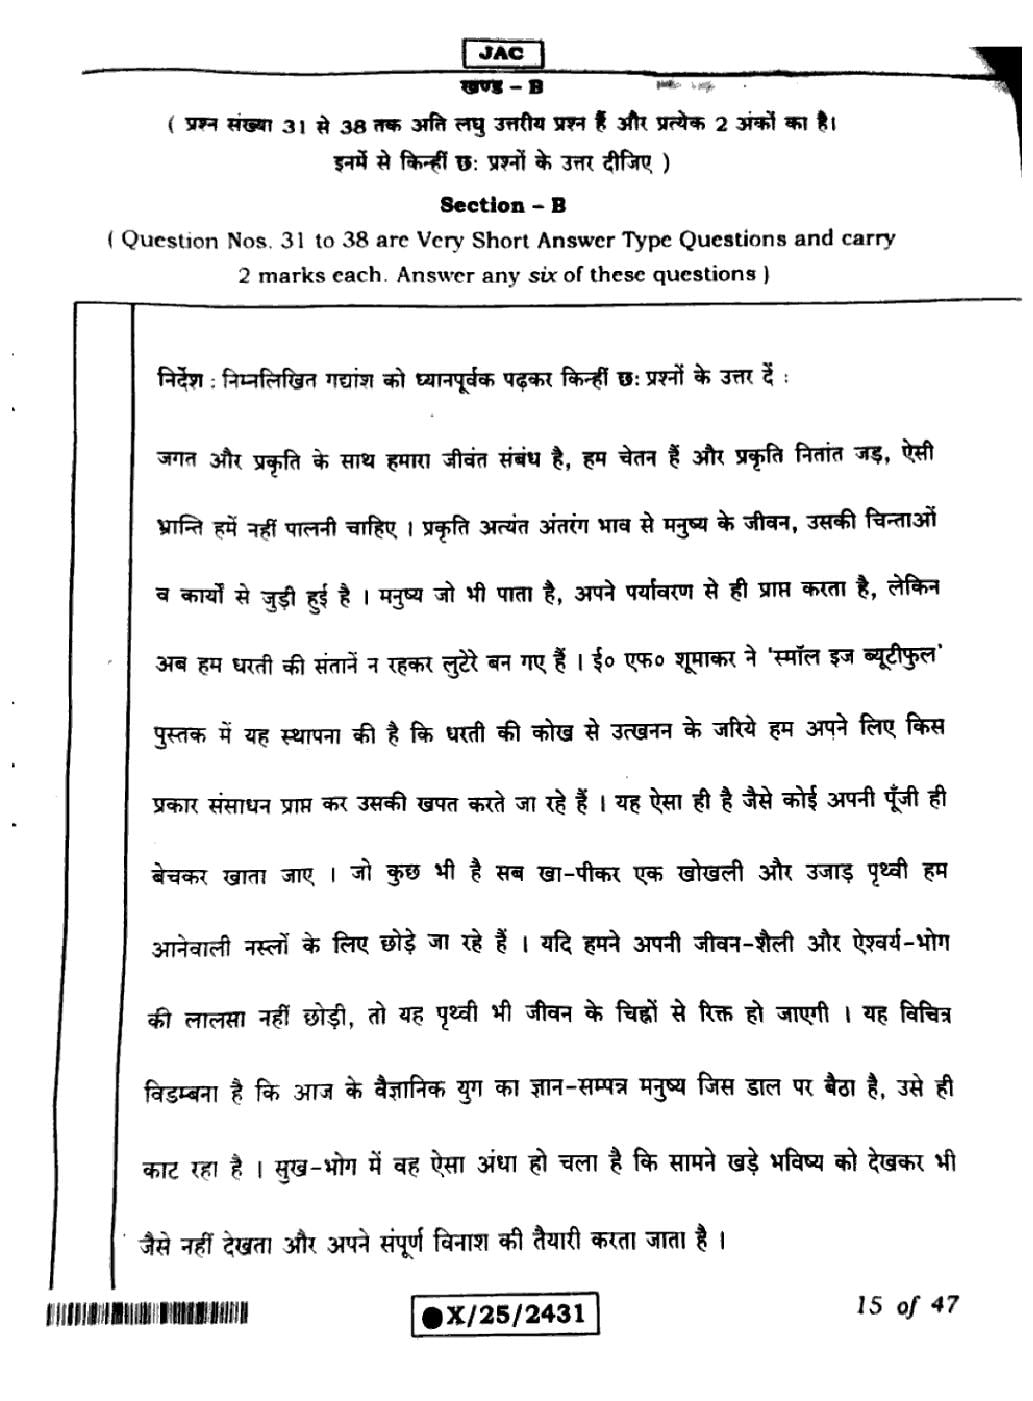 JAC
खण्ड – B
( प्रश्न संख्या 31 से 38 तक अति लघु उत्तरीय प्रश्न हैं और प्रत्येक 2 अंकों का है।
इनमें से किन्हीं छः प्रश्नों के उत्तर दीजिए )
Section – B
( Question Nos. 31 to 38 are Very Short Answer Type Questions and carry
2 marks each. Answer any six of these questions )
निर्देश : निम्नलिखित गद्यांश को ध्यानपूर्वक पढ़कर किन्हीं छः प्रश्नों के उत्तर दें :
जगत और प्रकृति के साथ हमारा जीवंत संबंध है, हम चेतन हैं और प्रकृति नितांत जड़, ऐसी
भ्रान्ति हमें नहीं पालनी चाहिए । प्रकृति अत्यंत अंतरंग भाव से मनुष्य के जीवन, उसकी चिन्ताओं
व कार्यों से जुड़ी हुई है । मनुष्य जो भी पाता है, अपने पर्यावरण से ही प्राप्त करता है, लेकिन
अब हम धरती की संतानें न रहकर लुटेरे बन गए हैं । ई० एफ० शूमाकर ने 'स्मॉल इज ब्यूटीफुल'
पुस्तक में यह स्थापना की है कि धरती की कोख से उत्खनन के जरिये हम अपने लिए किस
प्रकार संसाधन प्राप्त कर उसकी खपत करते जा रहे हैं । यह ऐसा ही है जैसे कोई अपनी पूँजी ही
बेचकर खाता जाए । जो कुछ भी है सब खा-पीकर एक खोखली और उजाड़ पृथ्वी हम
आनेवाली नस्लों के लिए छोड़े जा रहे हैं । यदि हमने अपनी जीवन-शैली और ऐश्वर्य-भोग
की लालसा नहीं छोड़ी, तो यह पृथ्वी भी जीवन के चिह्नों से रिक्त हो जाएगी । यह विचित्र
विडम्बना है कि आज के वैज्ञानिक युग का ज्ञान-सम्पन्न मनुष्य जिस डाल पर बैठा है, उसे ही
काट रहा है । सुख-भोग में वह ऐसा अंधा हो चला है कि सामने खड़े भविष्य को देखकर भी
जैसे नहीं देखता और अपने संपूर्ण विनाश की तैयारी करता जाता है ।
X/25/2431
15 of 47